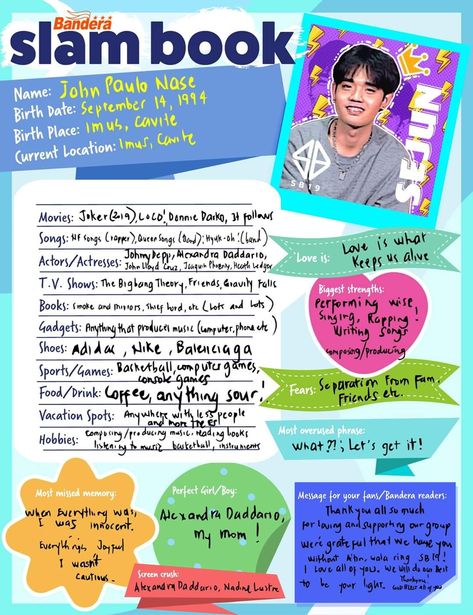 Bandera
slam book
Name: John Paulo Nase
Birth Date: September 14, 1994
Birth Place: Imus, Cavite
Current Location: Imus, Cavite
SB19
SEJUN
Movies: Joker (2019), COCO, Donnie Darko, It follows
Songs: NF songs (rapper), Queen Songs (Band), Hyuk-oh (band)
Actors/Actresses: Johnny Depp, Alexandra Daddario,
John Lloyd Cruz, Joaquin Phoenix, Heath Ledger
T.V. Shows: The Big bang Theory, Friends, Gravity Falls
Books: Smoke and Mirrors, Thief Lord, etc (lots and lots)
Gadgets: Anything that produces music (computer, phone etc)
Shoes: Adidas, Nike, Balenciaga
Sports/Games: Basketball, computer games,
console games
Food/Drink: Coffee, anything sour!
Vacation Spots: Anywhere with less people
and more trees!
Hobbies: composing/producing music, reading books
listening to music basketball, instruments
Love is: Love is what
keeps us alive
Biggest strengths:
Performing wise,
Singing, Rapping!
Writing songs
composing/producing
Fears: Separation from Fam,
Friends etc.
Most overused phrase:
What??; Let's get it!
Most missed memory:
When everything was,
I was innocent.
Everything's Joyful
I wasn't
cautious.
Perfect Girl/Boy:
Alexandra Daddario,
My Mom!
Screen crush:
Alexandra Daddario, Nadine Lustre
Message for your fans/Bandera readers:
Thank you all so much
for loving and supporting our group
we're grateful that we have you
without Atin, wala ring SB19!
I love all of you. We will do our best
to be your light. Thank you!
God Bless all of you